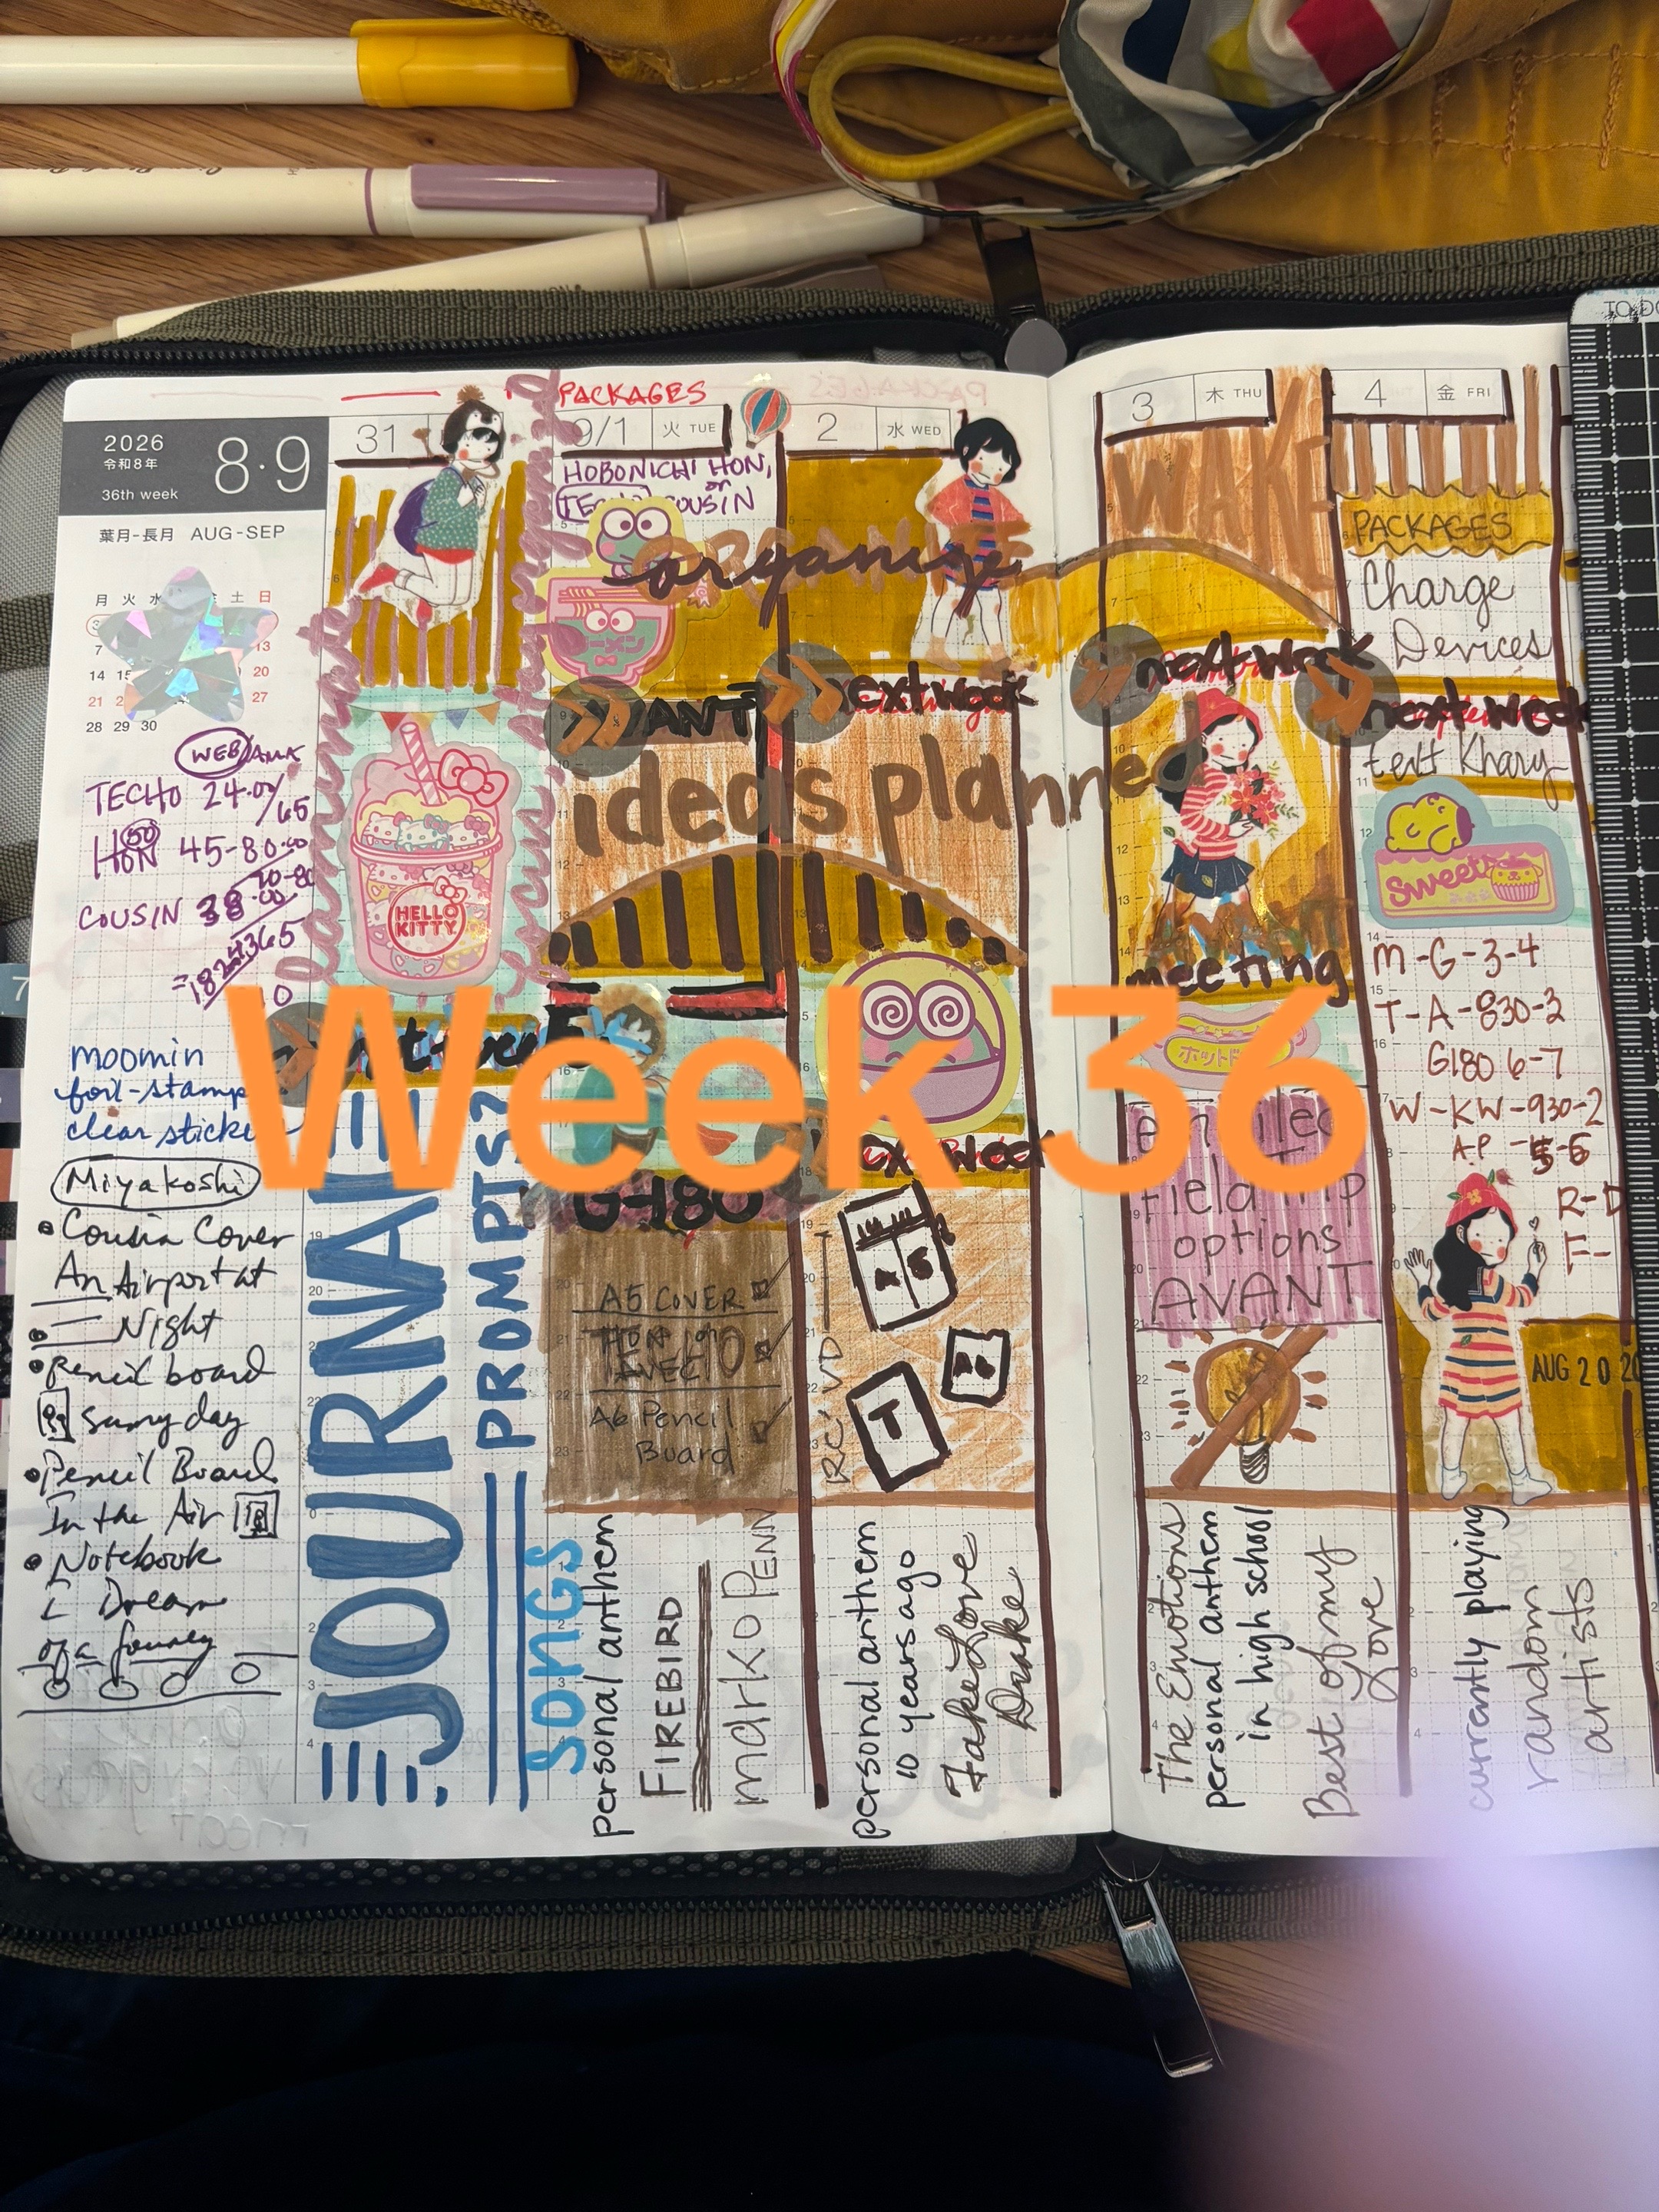 TO DO
PACKAGES
2026
令和8年
36th week
8·9
31
9/1 火 TUE
2 水 WED
3 木 THU
4 金 FRI
葉月-長月 AUG-SEP
月 火 水 土 日
7 13
14 15 20
21 27
28 29 30
WEB/AMK
TECHO 24.00/65
HON 45-80.00
COUSIN 38.00
moomin
foil-stamp
clear sticke
Miyakoshi
• Cousin Cover
An Airport at
Night
• Pencil board
sunny day
• Pencil Board
In the Air
• Notebook
Dream
of a Journey
HELLO
KITTY
JOURNAL
PROMPTS?
HOBONICHI HON,
or
COUSIN
ラーメン
organize
ANT
next week
ideas planned
G-180
A5 COVER
HON 1 of 10
AVEC
A6 Pencil
Board
SONGS
personal anthem
FIREBIRD
marko PENN
next week
REC'VD
A5
A6
T
personal anthem
10 years ago
Fake Love
Drake
WAKE
next week
meeting
ホットド
emailed
field trip
options
AVANT
The Emotions
personal anthem
in high school
Best of my
Love
PACKAGES
Charge
Devices
next week
text Khary
Sweet
M-G-3-4
T-A-830-3
G180 6-7
W-KW-930-2
AP -5-6
R-D
F-
AUG 20 20
currently playing
random
artists
Week 36